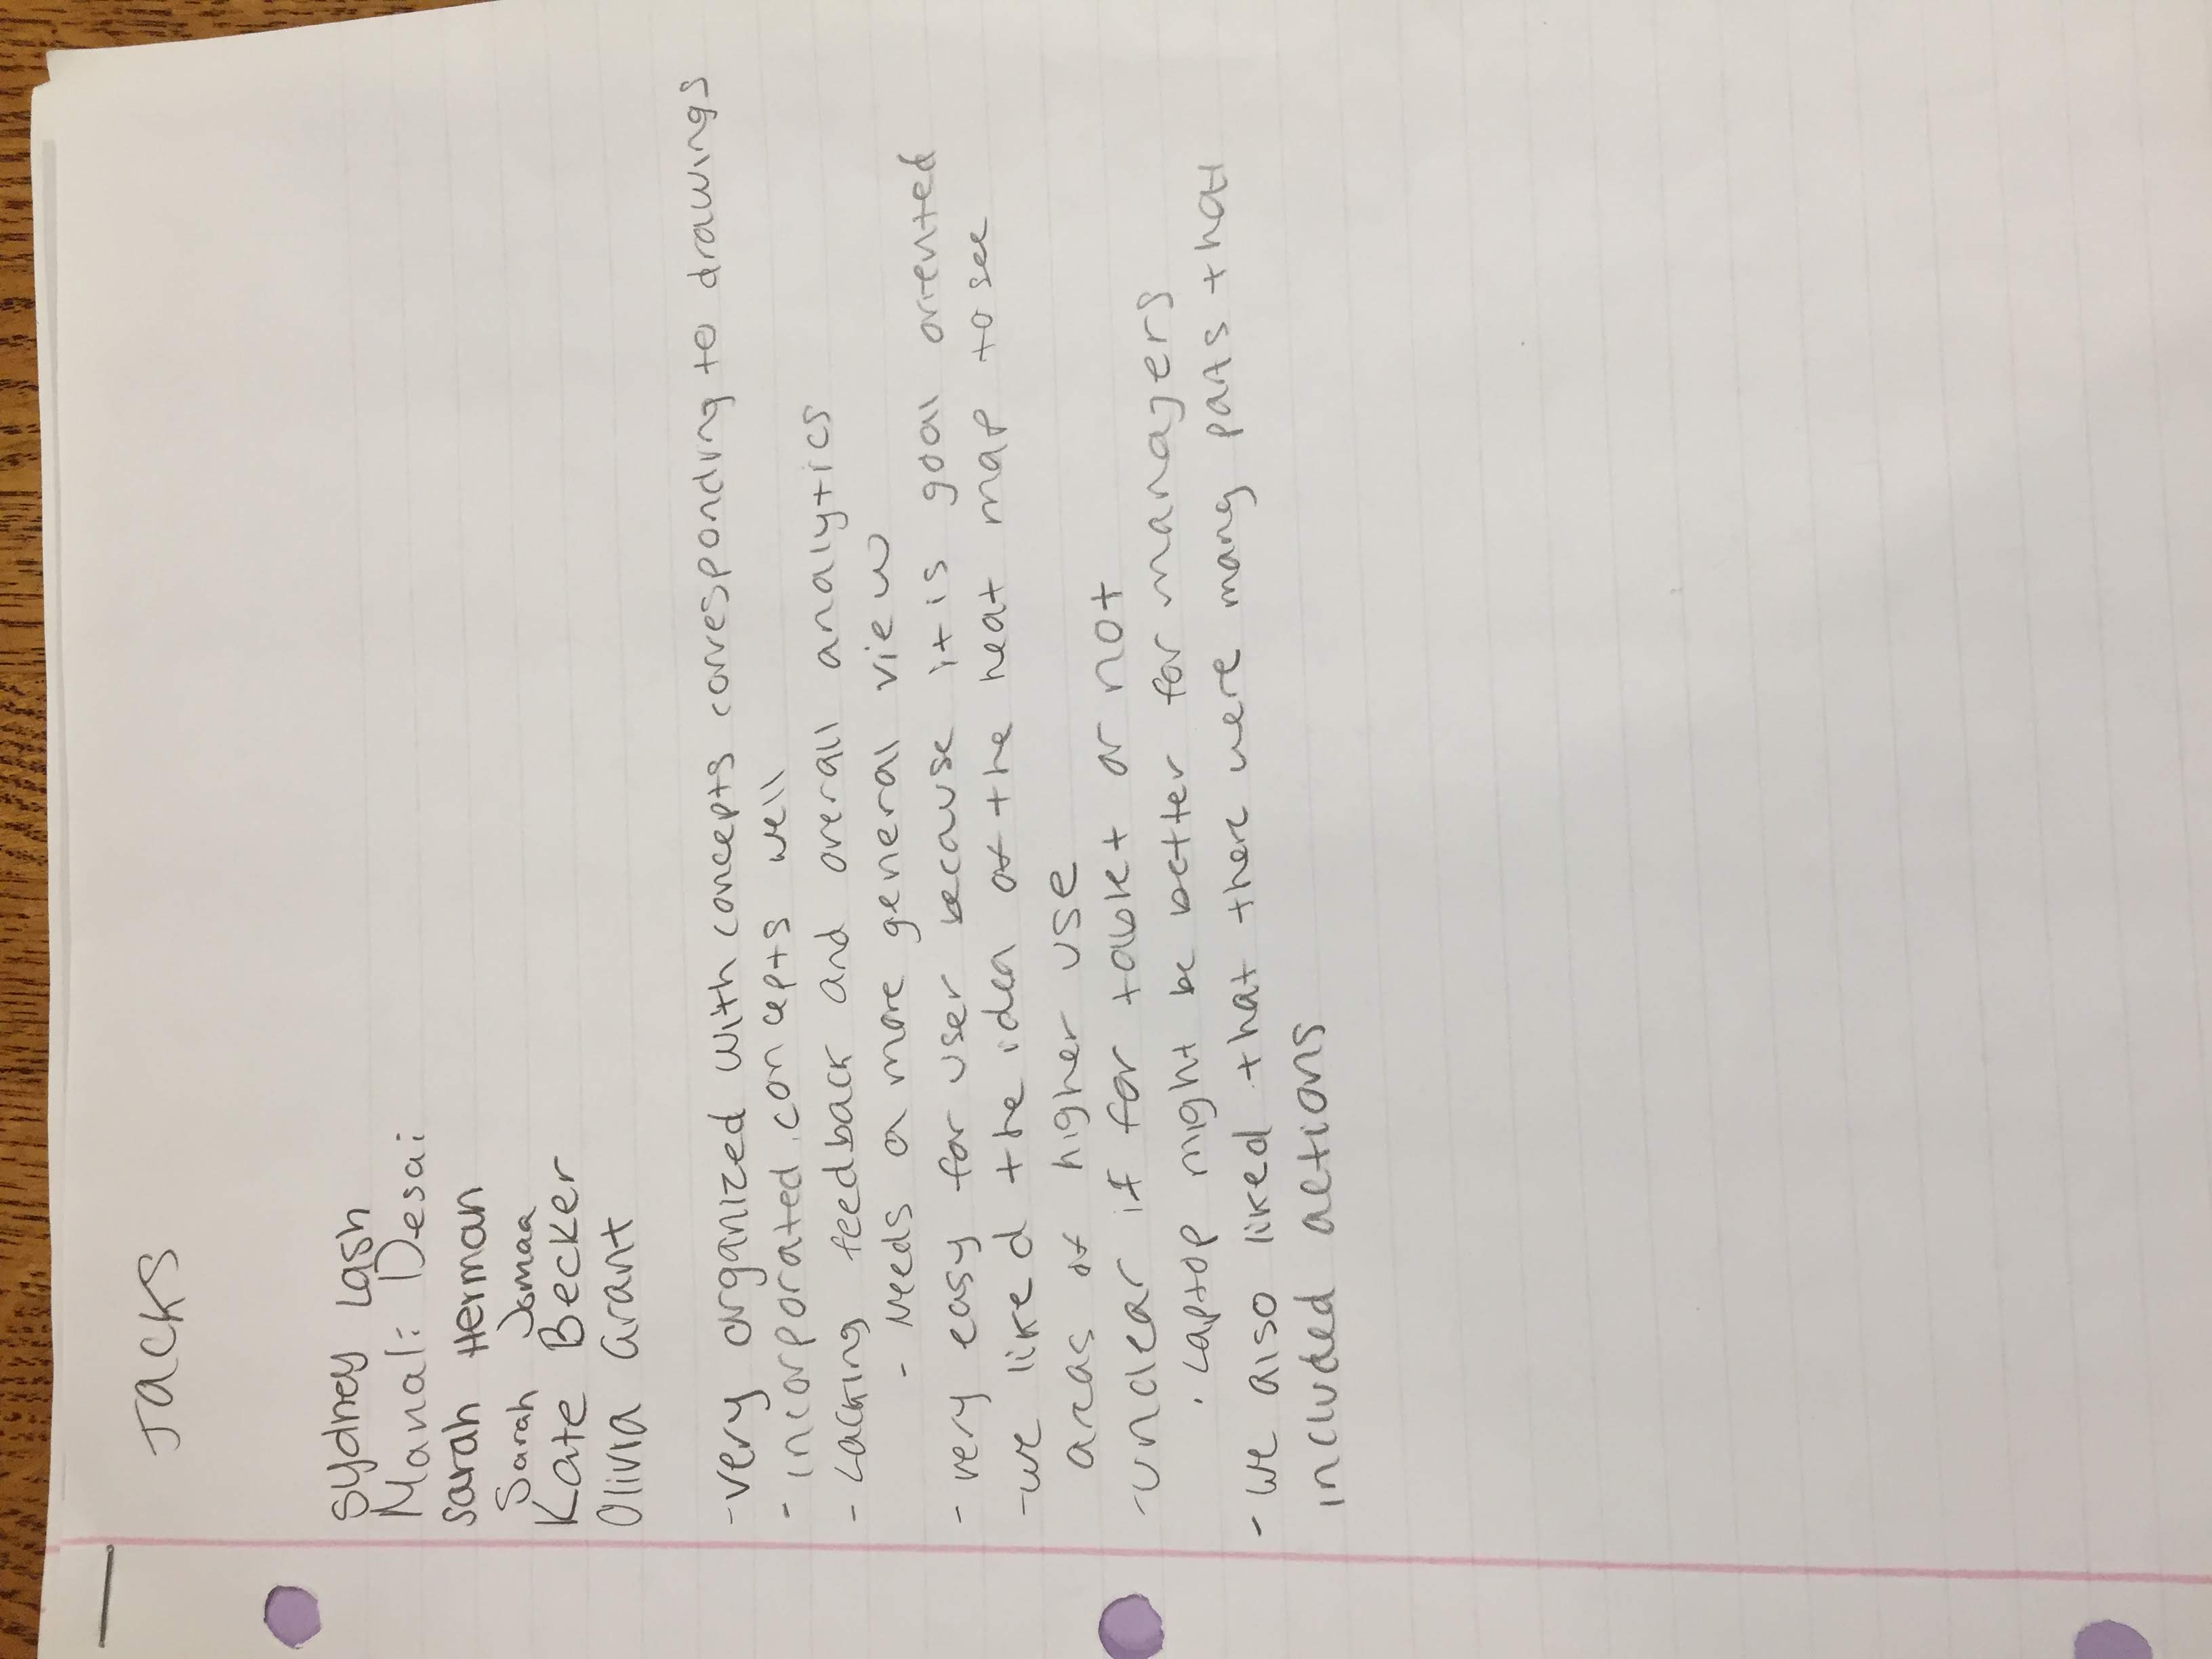 Jacks
Sydney Lash
Manali Desai
Sarah Herman
Sarah Jomaa
Kate Becker
Olivia Grant
-very organized with concepts corresponding to drawings
- incorporated concepts well
- Lacking feedback and overall analytics
- Needs a more general view
- very easy for user because it is goal oriented
-we liked the idea of the heat map to see
areas of higher use
-unclear if for tablet or not
· Laptop might be better for managers
- we also liked that there were many parts that
included actions